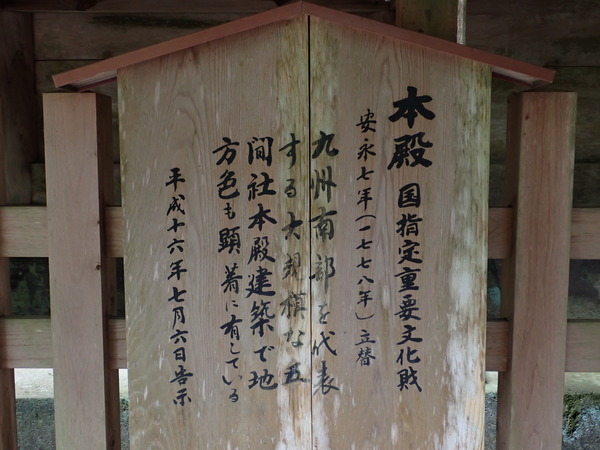 本殿 国指定重要文化財
安永七年(一七七八年)立替
九州南部を代表
する大規模な五
間社本殿建築で地
方色も顕著に有している
平成十六年七月六日告示